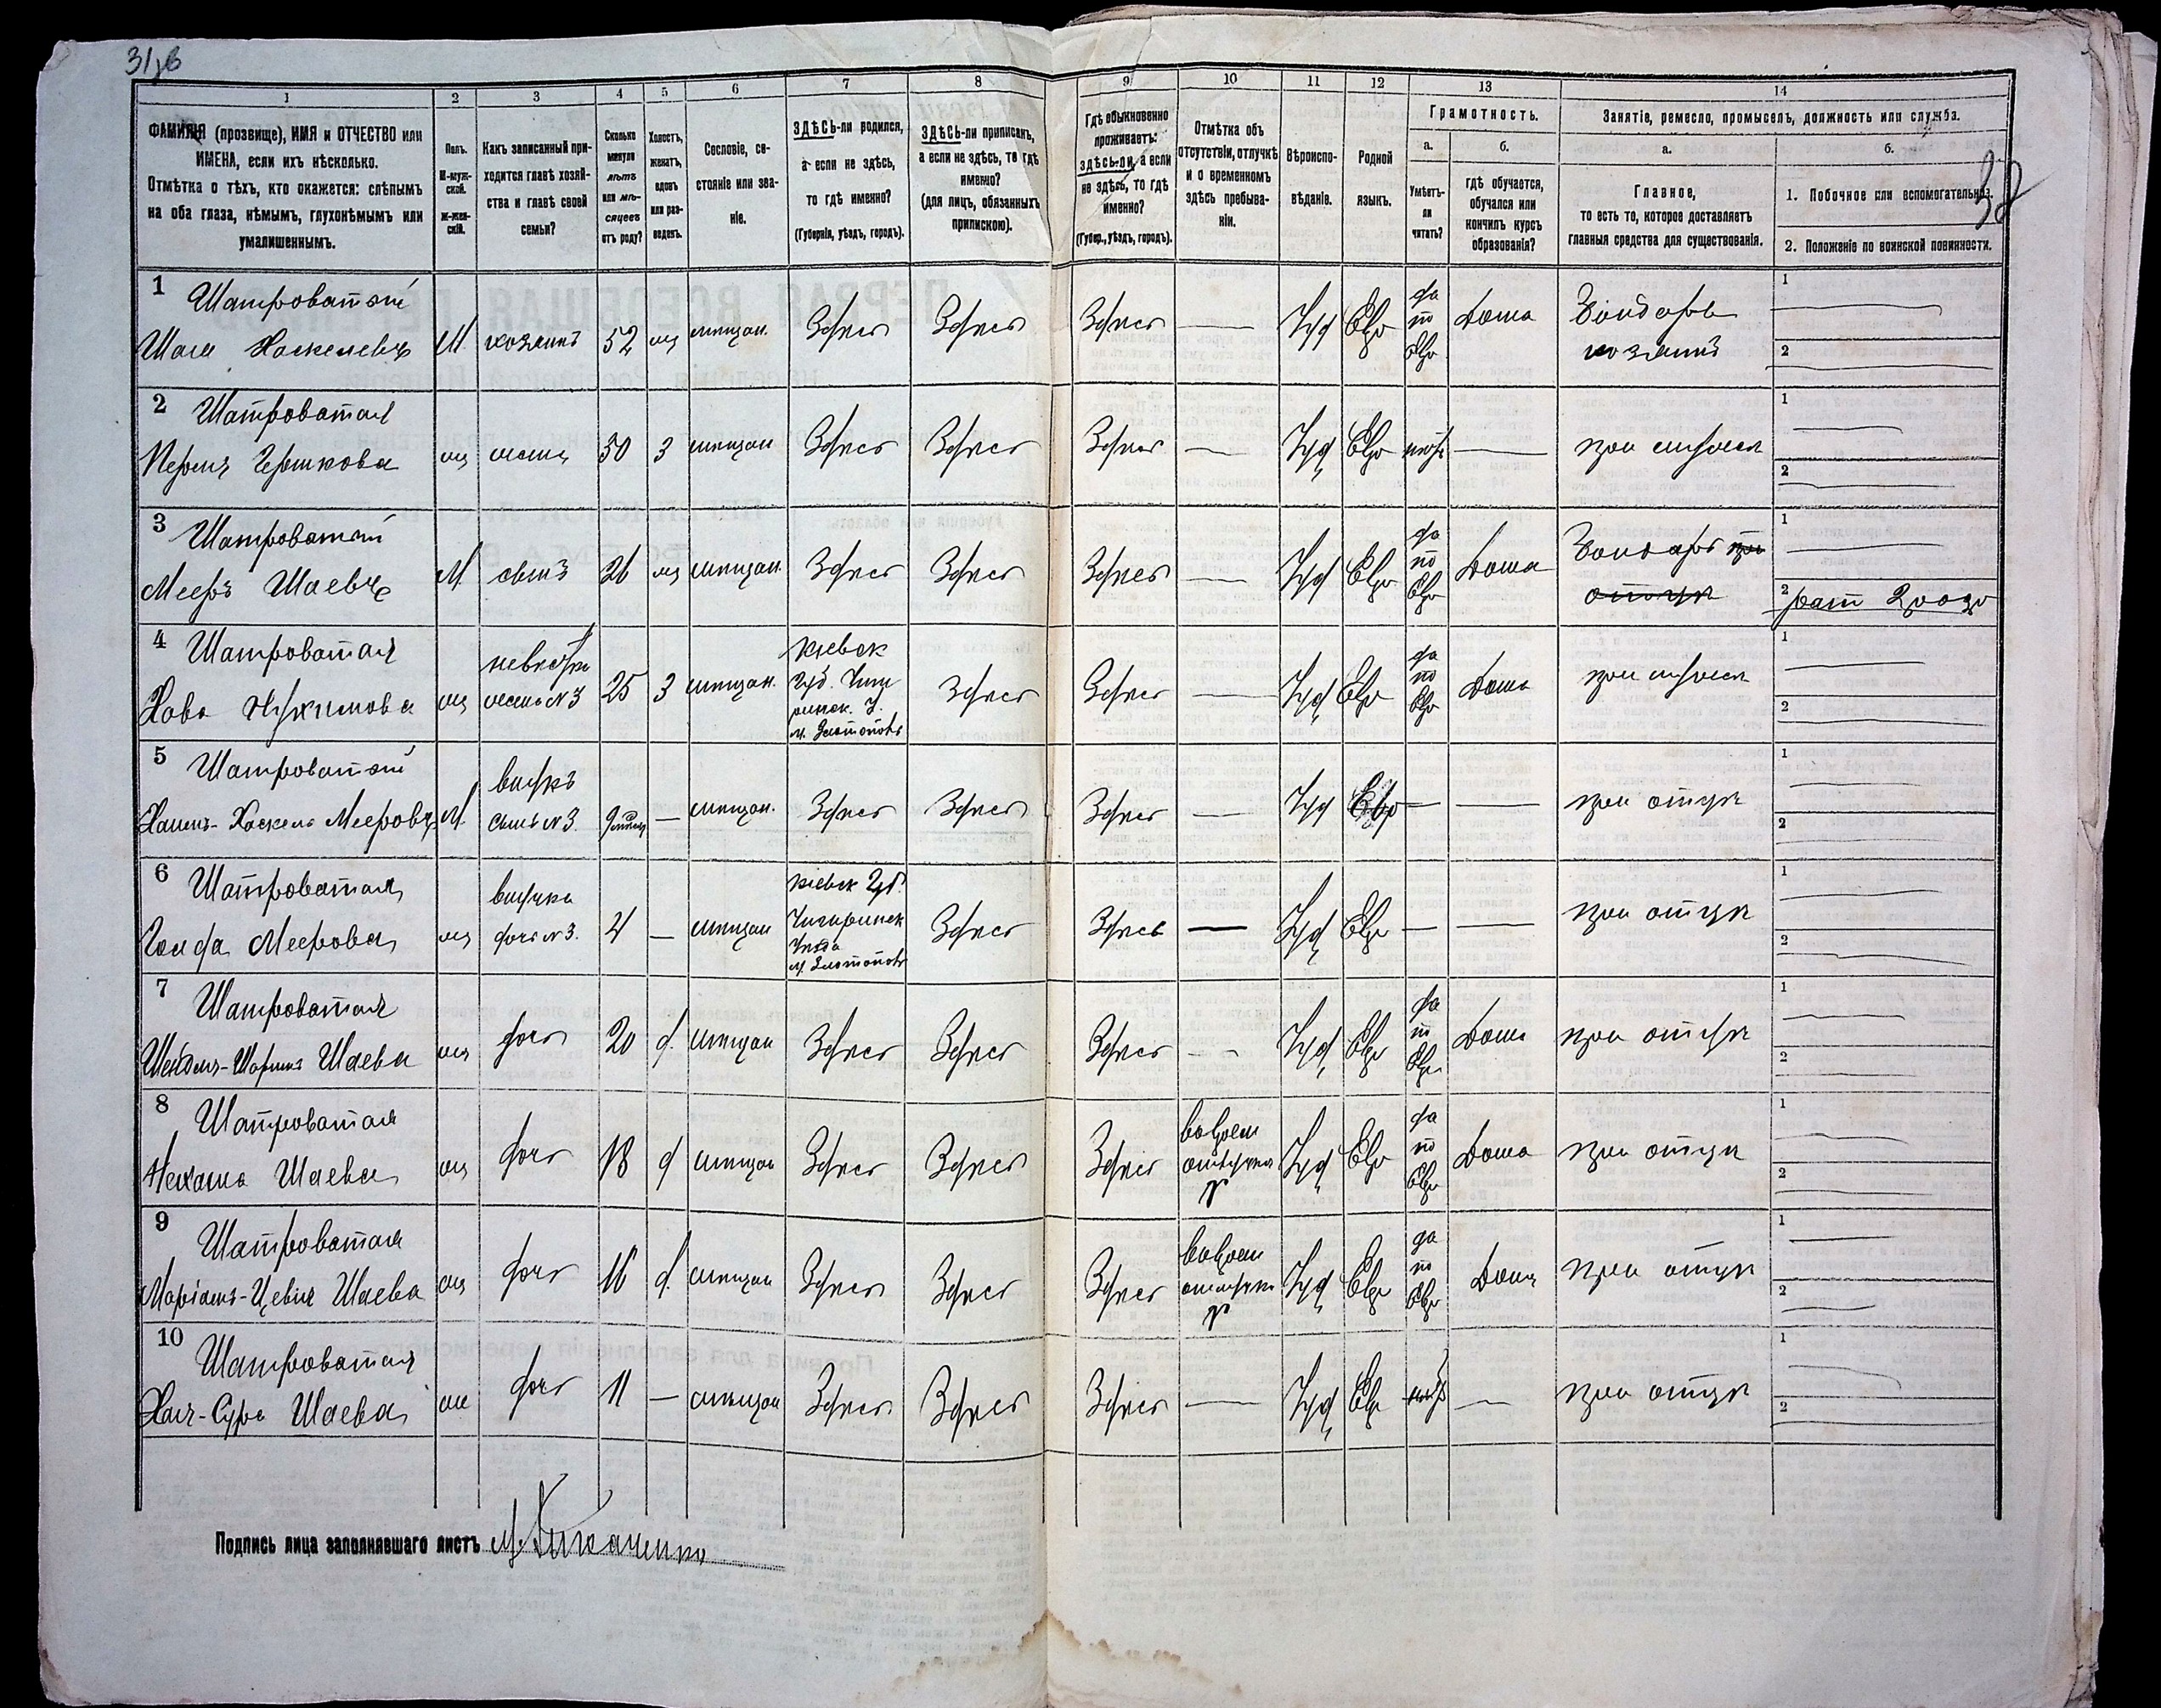 31/в
38
1 2 3 4 5 6 7 8 9 10 11 12 13 14
ФАМИЛІЯ (прозвище), ИМЯ и ОТЧЕСТВО или
ИМЕНА, если ихъ нѣсколько.
Отмѣтка о тѣхъ, кто окажется: слѣпымъ
на оба глаза, нѣмымъ, глухонѣмымъ или
умалишеннымъ.
Полъ.
М-муж-
ской.
Ж-жен-
скій.
Какъ записанный при-
ходится главѣ хозяй-
ства и главѣ своей
семьи?
Сколько
минуло
лѣтъ
или мѣ-
сяцевъ
отъ роду?
Холостъ,
женатъ,
вдовъ
или раз-
веденъ.
Сословіе, со-
стояніе или зва-
ніе.
ЗДѢСЬ-ли родился,
а если не здѣсь,
то гдѣ именно?
(Губернія, уѣздъ, городъ).
ЗДѢСЬ-ли приписанъ,
а если не здѣсь, то гдѣ
именно?
(для лицъ, обязанныхъ
припискою).
Гдѣ обыкновенно
проживаетъ:
здѣсь-ли, а если
не здѣсь, то гдѣ
именно?
(Губер., уѣздъ, городъ).
Отмѣтка объ
отсутствіи, отлучкѣ
и о временномъ
здѣсь пребыва-
ніи.
Вѣроиспо-
вѣданіе.
Родной
языкъ.
Грамотность.
а.
Умѣетъ-
ли
читать?
б.
гдѣ обучается,
обучался или
кончилъ курсъ
образованія?
Занятіе, ремесло, промыселъ, должность или служба.
а.
Главное,
то есть то, которое доставляетъ
главныя средства для существованія.
б.
1. Побочное или вспомогательное.
2. Положеніе по воинской повинности.
1 Шатроватый
Шая Хаскелевъ М хозяинъ 52 ж мѣщан. Здѣсь Здѣсь Здѣсь — Іуд Евр да по Евр дома Бондарь хозяинъ
2 Шатроватая
Перля Гершкова ж жена 50 З мѣщан Здѣсь Здѣсь Здѣсь — Іуд Евр нѣтъ — при мужѣ
3 Шатроватый
Мееръ Шаевъ М сынъ 26 ж мѣщан Здѣсь Здѣсь Здѣсь — Іуд Евр да по Евр дома Бондарь при отцѣ
4 Шатроватая
Хова ж невѣстка жена N 3 25 З мѣщан. Кіевск губ. Чиги ринск. у. м. Златополь Здѣсь Здѣсь — Іуд Евр да по Евр дома при мужѣ
5 Шатроватый
Хаскель Мееровъ М внукъ сынъ N 3. — мѣщан. Здѣсь Здѣсь Здѣсь — Іуд Евр — — при отцѣ
6 Шатроватая
Голда Меерова ж внучка дочь N 3. 4 — мѣщан Кіевск Губ. Чигиринск Уѣзда м. Златополь Здѣсь Здѣсь — Іуд Евр — — при отцѣ
7 Шатроватая
Шейдля- Шаева ж дочь 20 д. мѣщан Здѣсь Здѣсь Здѣсь — Іуд Евр да по Евр дома при отцѣ
8 Шатроватая
Нехама Шаева ж дочь 18 д мѣщан Здѣсь Здѣсь Здѣсь Іуд Евр да по Евр дома при отцѣ
9 Шатроватая
Маріамъ-Цевія Шаева ж дочь 16 д. мѣщан Здѣсь Здѣсь Здѣсь Іуд Евр да по Евр дома при отцѣ
10 Шатроватая
Хая-Сура Шаева ж дочь 11 — мѣщан Здѣсь Здѣсь Здѣсь — Іуд Евр нѣтъ — при отцѣ
Подпись лица заполнявшаго листъ